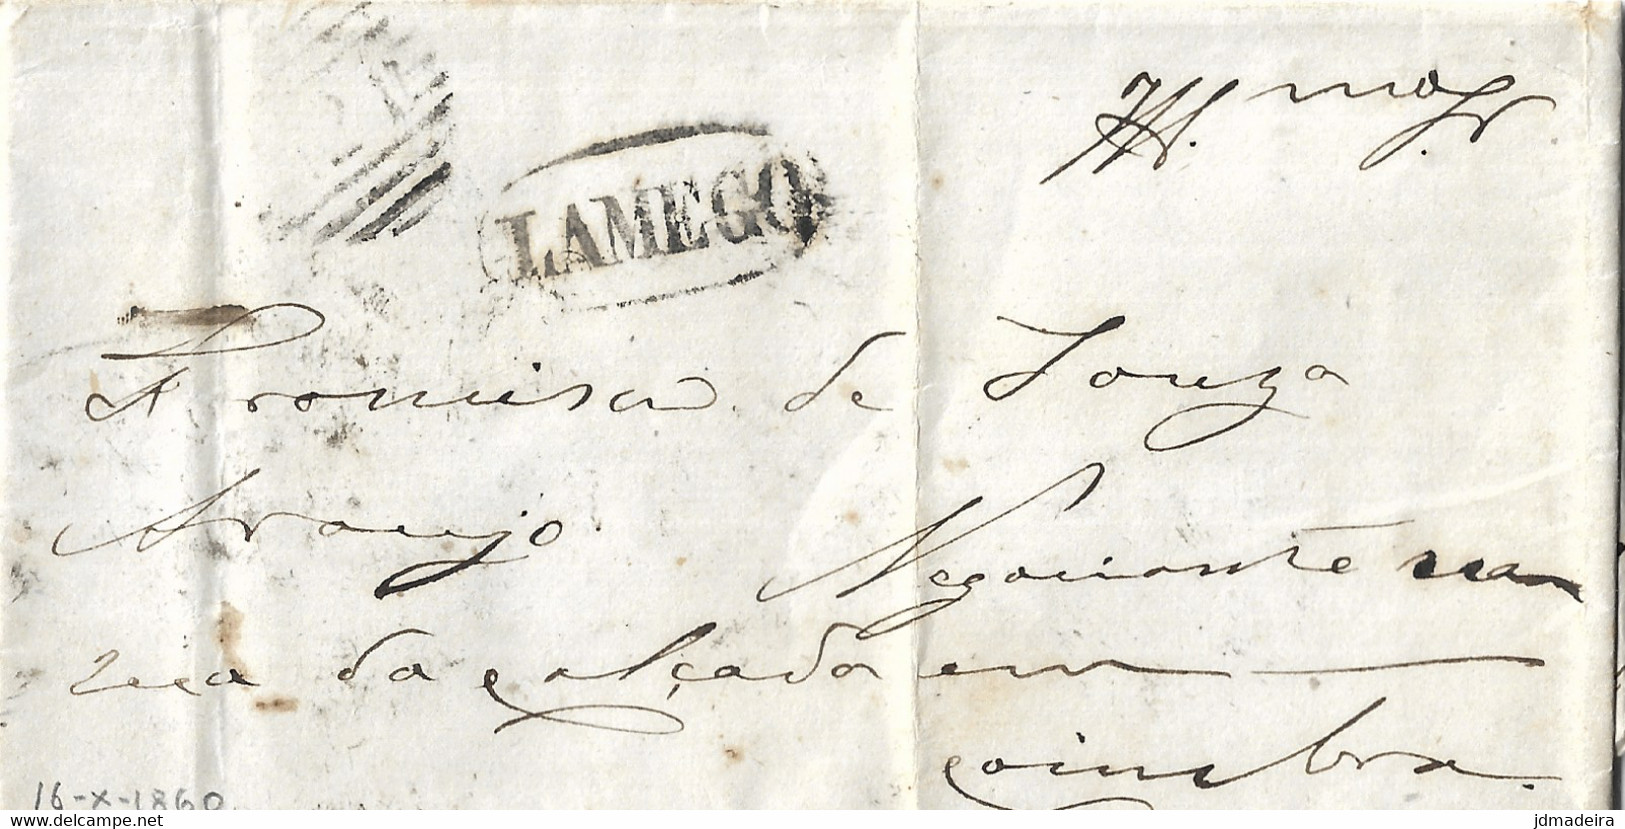 Illmo Sr.
LAMEGO
Francisco de Souza
Araujo. Negociante na
rua da calçada em
Coimbra.
16-X-1860
delcampe.net
jdmadeira